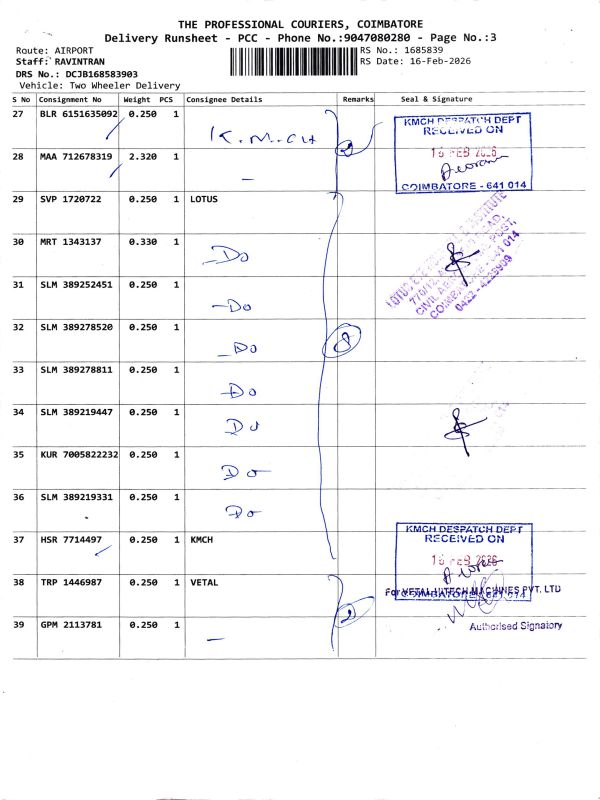 THE PROFESSIONAL COURIERS, COIMBATORE
Delivery Runsheet - PCC - Phone No.:9047080280 - Page No.:3
Route: AIRPORT
Staff: RAVINTRAN
DRS No.: DCJB168583903
Vehicle: Two Wheeler Delivery
RS No.: 1685839
RS Date: 16-Feb-2026
S No Consignment No Weight PCS Consignee Details Remarks Seal & Signature
27 BLR 6151635092 0.250 1 K.M.CH
KMCH DESPATCH DEPT
RECEIVED ON
16 FEB 2026
COIMBATORE - 641 014
28 MAA 712678319 2.320 1 –
2
29 SVP 1720722 0.250 1 LOTUS
30 MRT 1343137 0.330 1 –Do
31 SLM 389252451 0.250 1 –Do
COIMBATORE 641 014
0422 - 4229909
32 SLM 389278520 0.250 1 –Do
8
33 SLM 389278811 0.250 1 –Do
34 SLM 389219447 0.250 1 Do
35 KUR 7005822232 0.250 1 Do
36 SLM 389219331 0.250 1 Do
37 HSR 7714497 0.250 1 KMCH
KMCH DESPATCH DEPT
RECEIVED ON
16 FEB 2026
COIMBATORE - 641 014
38 TRP 1446987 0.250 1 VETAL
For VETAL HITECH MACHINES PVT. LTD
2
39 GPM 2113781 0.250 1 –
Authorised Signatory